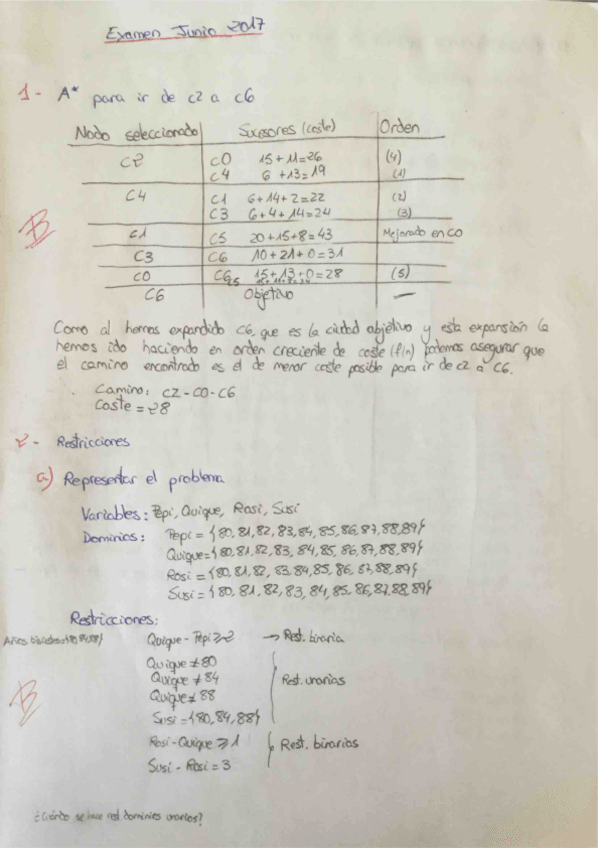 Examen Junio 2017
1- A* para ir de c2 a c6
Nodo seleccionado Sucesores (coste) Orden
C2 C0 15+11=26 (4)
C4 6+13=19 (1)
C4 C1 6+14+2=22 (2)
C3 6+4+14=24 (3)
C1 C5 20+15+8=43 Mejorado en C0
C3 C6 10+21+0=31
C0 C6 15+13+0=28 (5)
C6 Objetivo —
B
Como al hemos expandido C6, que es la ciudad objetivo y esta expansión la
hemos ido haciendo en orden creciente de coste (f(n)) podemos asegurar que
el camino encontrado es el de menor coste posible para ir de c2 a C6.
Camino: C2-C0-C6
Coste = 28
2- Restricciones
a) Representar el problema
Variables: Pepi, Quique, Rosi, Susi
Dominios: Pepi = {80,81,82,83,84,85,86,87,88,89}
Quique={80,81,82,83,84,85,86,87,88,89}
Rosi = {80,81,82,83,84,85,86,87,88,89}
Susi = {80,81,82,83,84,85,86,87,88,89}
Restricciones:
Años bisiestos={80,84,88}
Quique - Pepi ≥2 → Rest. binaria
Quique ≠ 80
Quique ≠ 84 Rest. unarias
Quique ≠ 88
Susi = {80,84,88}
B
Rosi-Quique ≥ 1 Rest. binarias
Susi - Rosi = 3
¿Cuándo se hace red. dominios unarios?